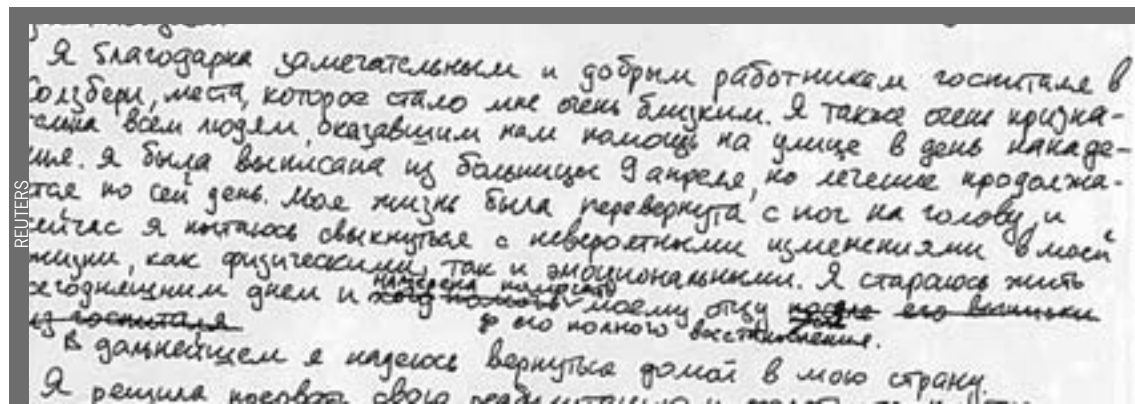 Я благодарна замечательным и добрым работникам госпиталя в
Солзбери, места, которое стало мне очень близким. Я также очень призна-
тельна всем людям, оказавшим нам помощь на улице в день нападе-
ния. Я была выписана из больницы 9 апреля, но лечение продолжа-
ется по сей день. Моя жизнь была перевернута с ног на голову, и
сейчас я пытаюсь свыкнуться с невероятными изменениями в моей
жизни, как физическими, так и эмоциональными. Я стараюсь жить
намерена помогать
сегодняшним днем и хочу помочь моему отцу после его выписки
из госпиталя до его полного восстановления.
В дальнейшем я надеюсь вернуться домой в мою страну.
Я решила
свою
REUTERS